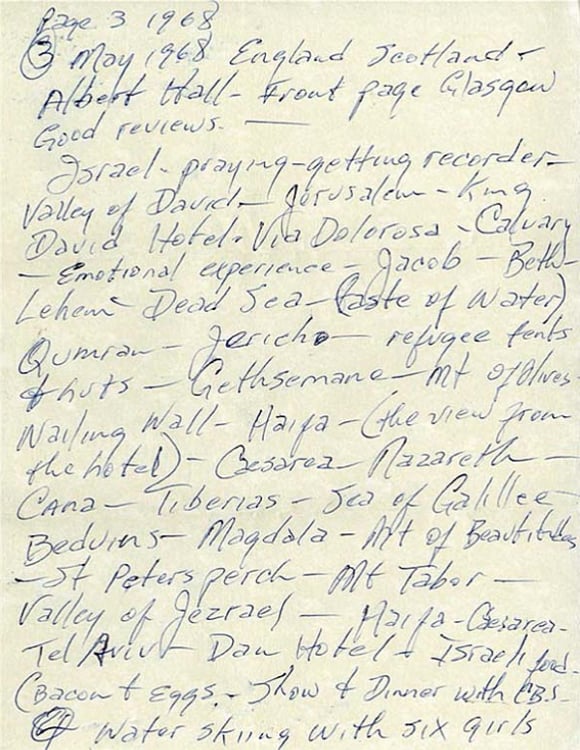 Page 3 1968
③ May 1968 England Scotland +
Albert Hall - Front page Glasgow
Good reviews. —
Israel - praying - getting recorder -
Valley of David - Jerusalem - King
David Hotel. Via Dolorosa - Calvary
- Emotional experience - Jacob - Beth-
Lehem - Dead Sea - (taste of water)
Qumran - Jericho - refugee tents
& huts - Gethsemane - Mt of Olives -
Wailing Wall - Haifa - (the view from
the hotel) - Caesarea - Nazareth -
Cana - Tiberias - Sea of Galilee -
Beduins - Magdala - Mt of Beautitudes
- St Peters perch - Mt Tabor -
Valley of Jezrael - Haifa - Caesarea -
Tel Aviv - Dan Hotel - Israeli food -
(Bacon & Eggs - Show & Dinner with CBS -
④ Water skiing with six girls